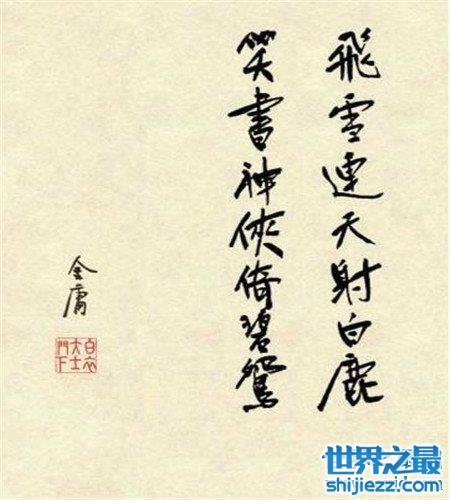 飛雪連天射白鹿
笑書神俠倚碧鴛
金庸
白衣大士門下
世界之最
shijiezzi.com